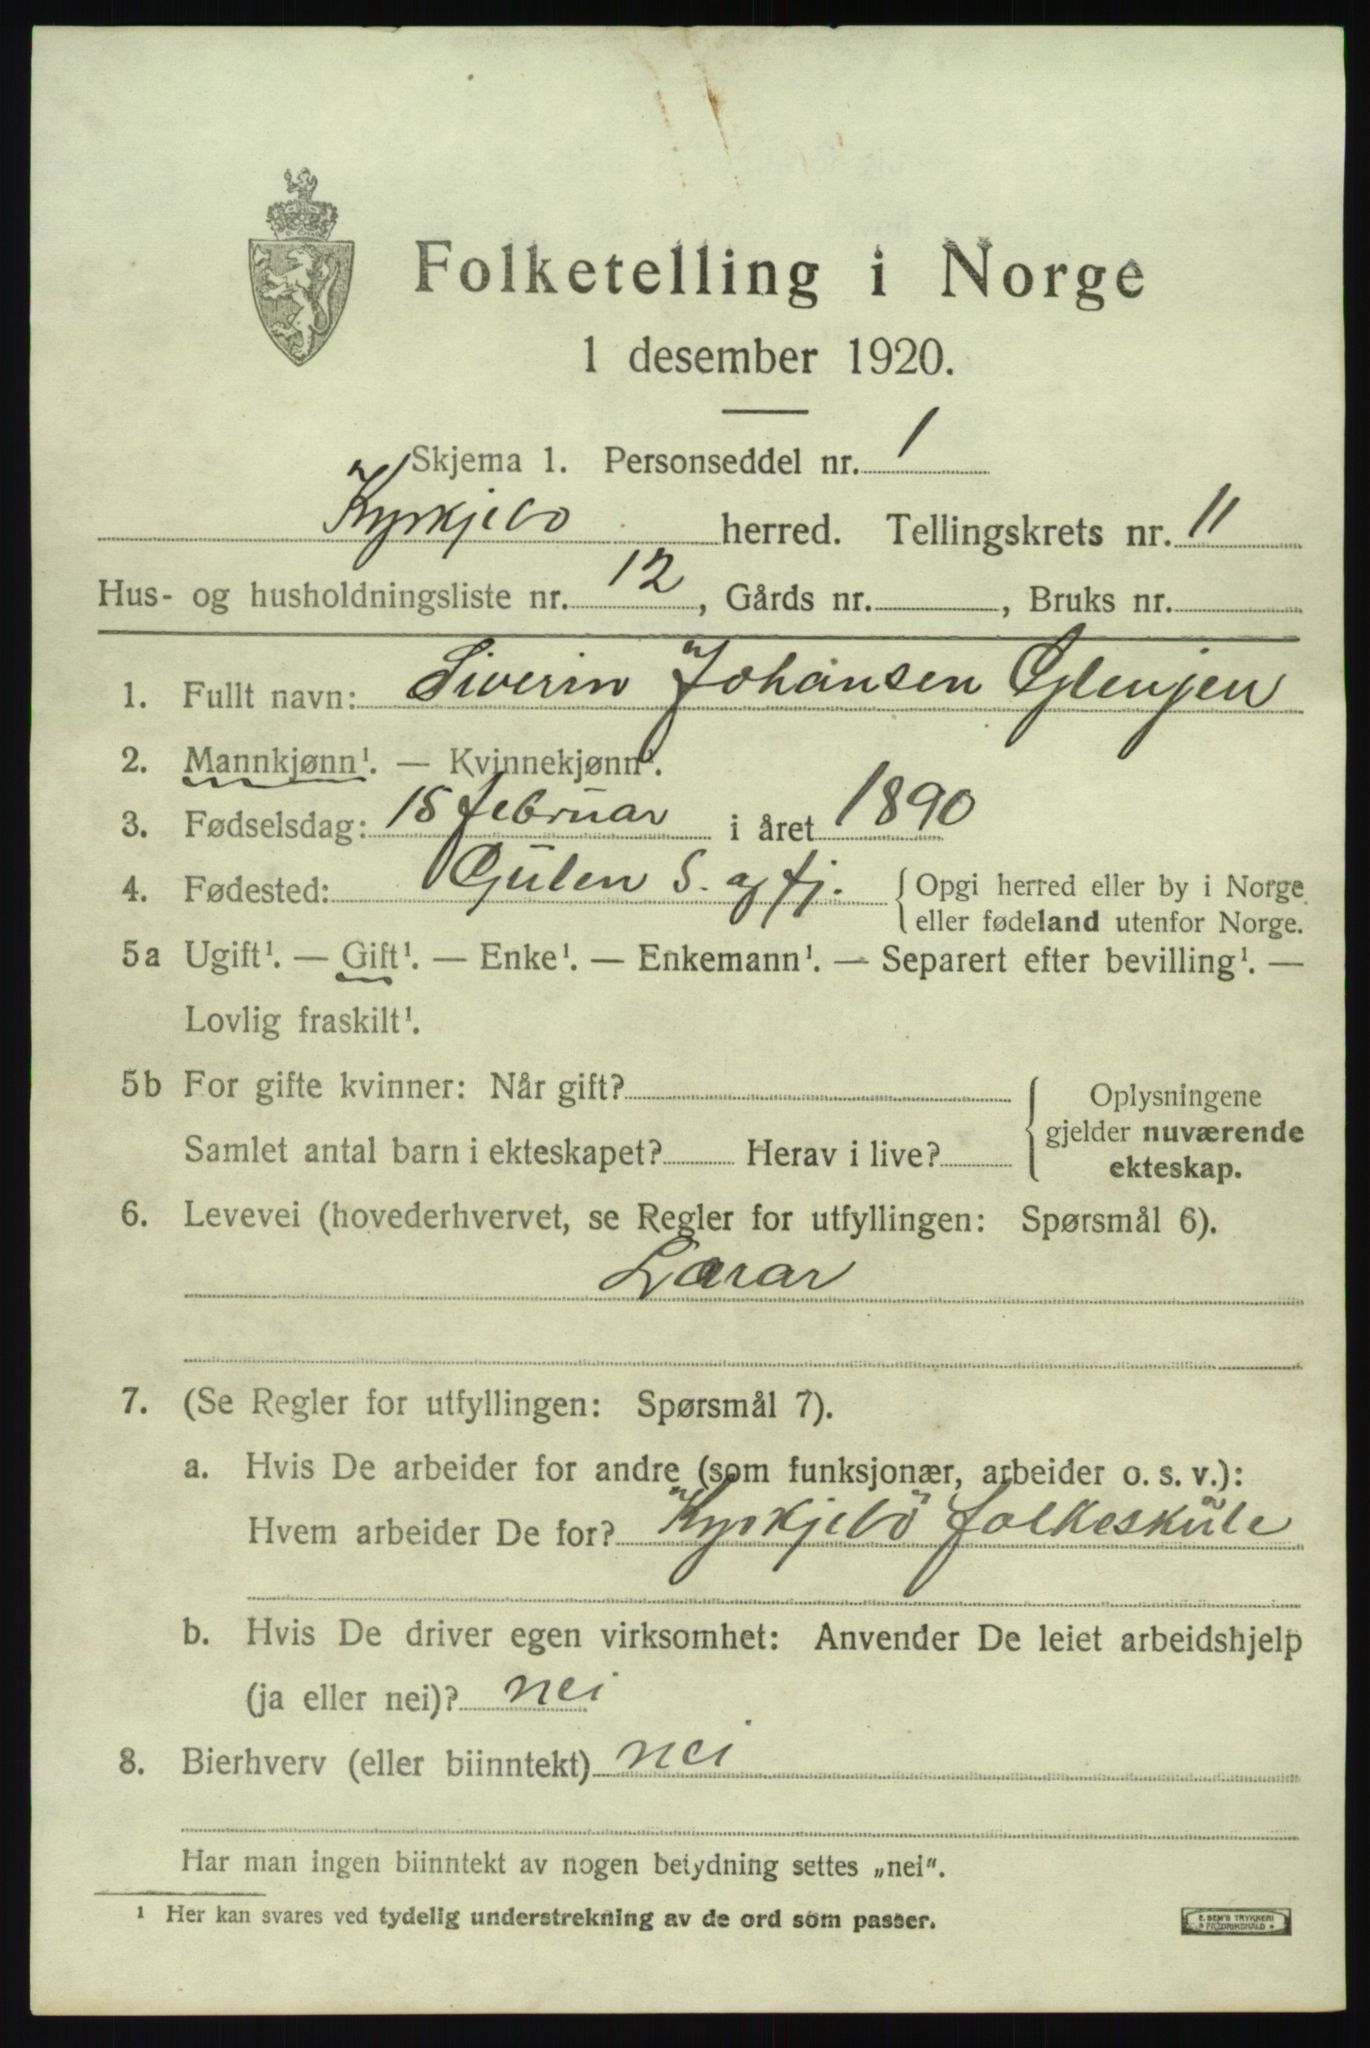 Folketelling i Norge
1 desember 1920.
Skjema 1. Personseddel nr. 1
Kyrkjebø herred. Tellingskrets nr. 11
Hus- og husholdningsliste nr. 12, Gårds nr. , Bruks nr.
1. Fullt navn: Siverin Johansen Glenjen
2. Mannkjønn¹. — Kvinnekjønn¹.
3. Fødselsdag: 15 februar i året 1890
4. Fødested: Gulen S. og fj. Opgi herred eller by i Norge
eller fødeland utenfor Norge.
5a Ugift¹. — Gift¹. — Enke¹. — Enkemann¹. — Separert efter bevilling¹. —
Lovlig fraskilt¹.
5b For gifte kvinner: Når gift? Oplysningene
gjelder nuværende
Samlet antal barn i ekteskapet? Herav i live? ekteskap.
6. Levevei (hovederhvervet, se Regler for utfyllingen: Spørsmål 6).
Lærar
7. (Se Regler for utfyllingen: Spørsmål 7).
a. Hvis De arbeider for andre (som funksjonær, arbeider o. s. v.):
Hvem arbeider De for? Kyrkjebø folkeskule
b. Hvis De driver egen virksomhet: Anvender De leiet arbeidshjelp
(ja eller nei)? nei
8. Bierhverv (eller biinntekt) nei
Har man ingen biinntekt av nogen betydning settes „nei“.
¹ Her kan svares ved tydelig understrekning av de ord som passer.
E. SEM'S TRYKKERI
FREDRIKSHALD